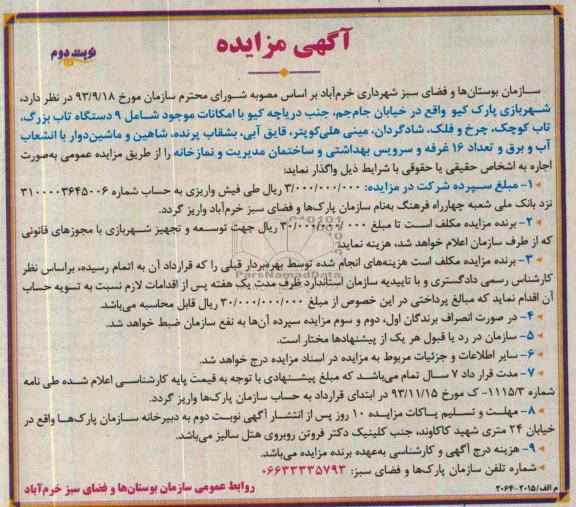 آگهی مزایده
نوبت دوم
سازمان بوستان‌ها و فضای سبز شهرداری خرم‌آباد بر اساس مصوبه شورای محترم سازمان مورخ ۹۳/۹/۱۸ در نظر دارد،
شهربازی پارک کیو واقع در خیابان جام‌جم، جنب دریاچه کیو با امکانات موجود شامل ۹ دستگاه تاب بزرگ،
تاب کوچک، چرخ و فلک، شادگردان، مینی هلی‌کوپتر، قایق آبی، بشقاب پرنده، شاهین و ماشین‌دوار با انشعاب
آب و برق و تعداد ۱۶ غرفه و سرویس بهداشتی و ساختمان مدیریت و نمازخانه را از طریق مزایده عمومی به‌صورت
اجاره به اشخاص حقیقی یا حقوقی با شرایط ذیل واگذار نماید:
۱- مبلغ سپرده شرکت در مزایده: ۳/۰۰۰/۰۰۰/۰۰۰ ریال طی فیش واریزی به حساب شماره ۳۱۰۰۰۰۳۶۴۵۰۰۶
نزد بانک ملی شعبه چهارراه فرهنگ به‌نام سازمان پارک‌ها و فضای سبز خرم‌آباد واریز گردد.
۲- برنده مزایده مکلف است تا مبلغ ۳۰/۰۰۰/۰۰۰/۰۰۰ ریال جهت توسعه و تجهیز شهربازی با مجوزهای قانونی
که از طرف سازمان اعلام خواهد شد، هزینه نماید.
۳- برنده مزایده مکلف است هزینه‌های انجام شده توسط بهره‌بردار قبلی را که قرارداد آن به اتمام رسیده، براساس نظر
کارشناس رسمی دادگستری و با تاییدیه سازمان استاندارد ظرف مدت یک هفته پس از اقدامات لازم نسبت به تسویه حساب
آن اقدام نماید که مبالغ پرداختی در این خصوص از مبلغ ۳۰/۰۰۰/۰۰۰/۰۰۰ ریال قابل محاسبه می‌باشد.
۴- در صورت انصراف برندگان اول، دوم و سوم مزایده سپرده آن‌ها به نفع سازمان ضبط خواهد شد.
۵- سازمان در رد یا قبول هر یک از پیشنهادها مختار است.
۶- سایر اطلاعات و جزئیات مربوط به مزایده در اسناد مزایده درج خواهد شد.
۷- مدت قرار داد ۷ سال تمام می‌باشد که مبلغ پیشنهادی با توجه به قیمت پایه کارشناسی اعلام شده طی نامه
شماره ۱۱۱۵/۳- ک مورخ ۹۳/۱۱/۱۵ در ابتدای قرارداد به حساب سازمان پارک‌ها واریز گردد.
۸- مهلت و تسلیم پاکات مزایده ۱۰ روز پس از انتشار آگهی نوبت دوم به دبیرخانه سازمان پارک‌ها واقع در
خیابان ۲۴ متری شهید کاکاوند، جنب کلینیک دکتر فروتن روبروی هتل سالیز می‌باشد.
۹- هزینه درج آگهی و کارشناسی به‌عهده برنده مزایده می‌باشد.
شماره تلفن سازمان پارک‌ها و فضای سبز: ۰۶۶۳۳۳۳۵۷۹۳
روابط عمومی سازمان بوستان‌ها و فضای سبز خرم‌آباد
م الف/۲۰۱۵-۲۰۶۴
ParsNamadData